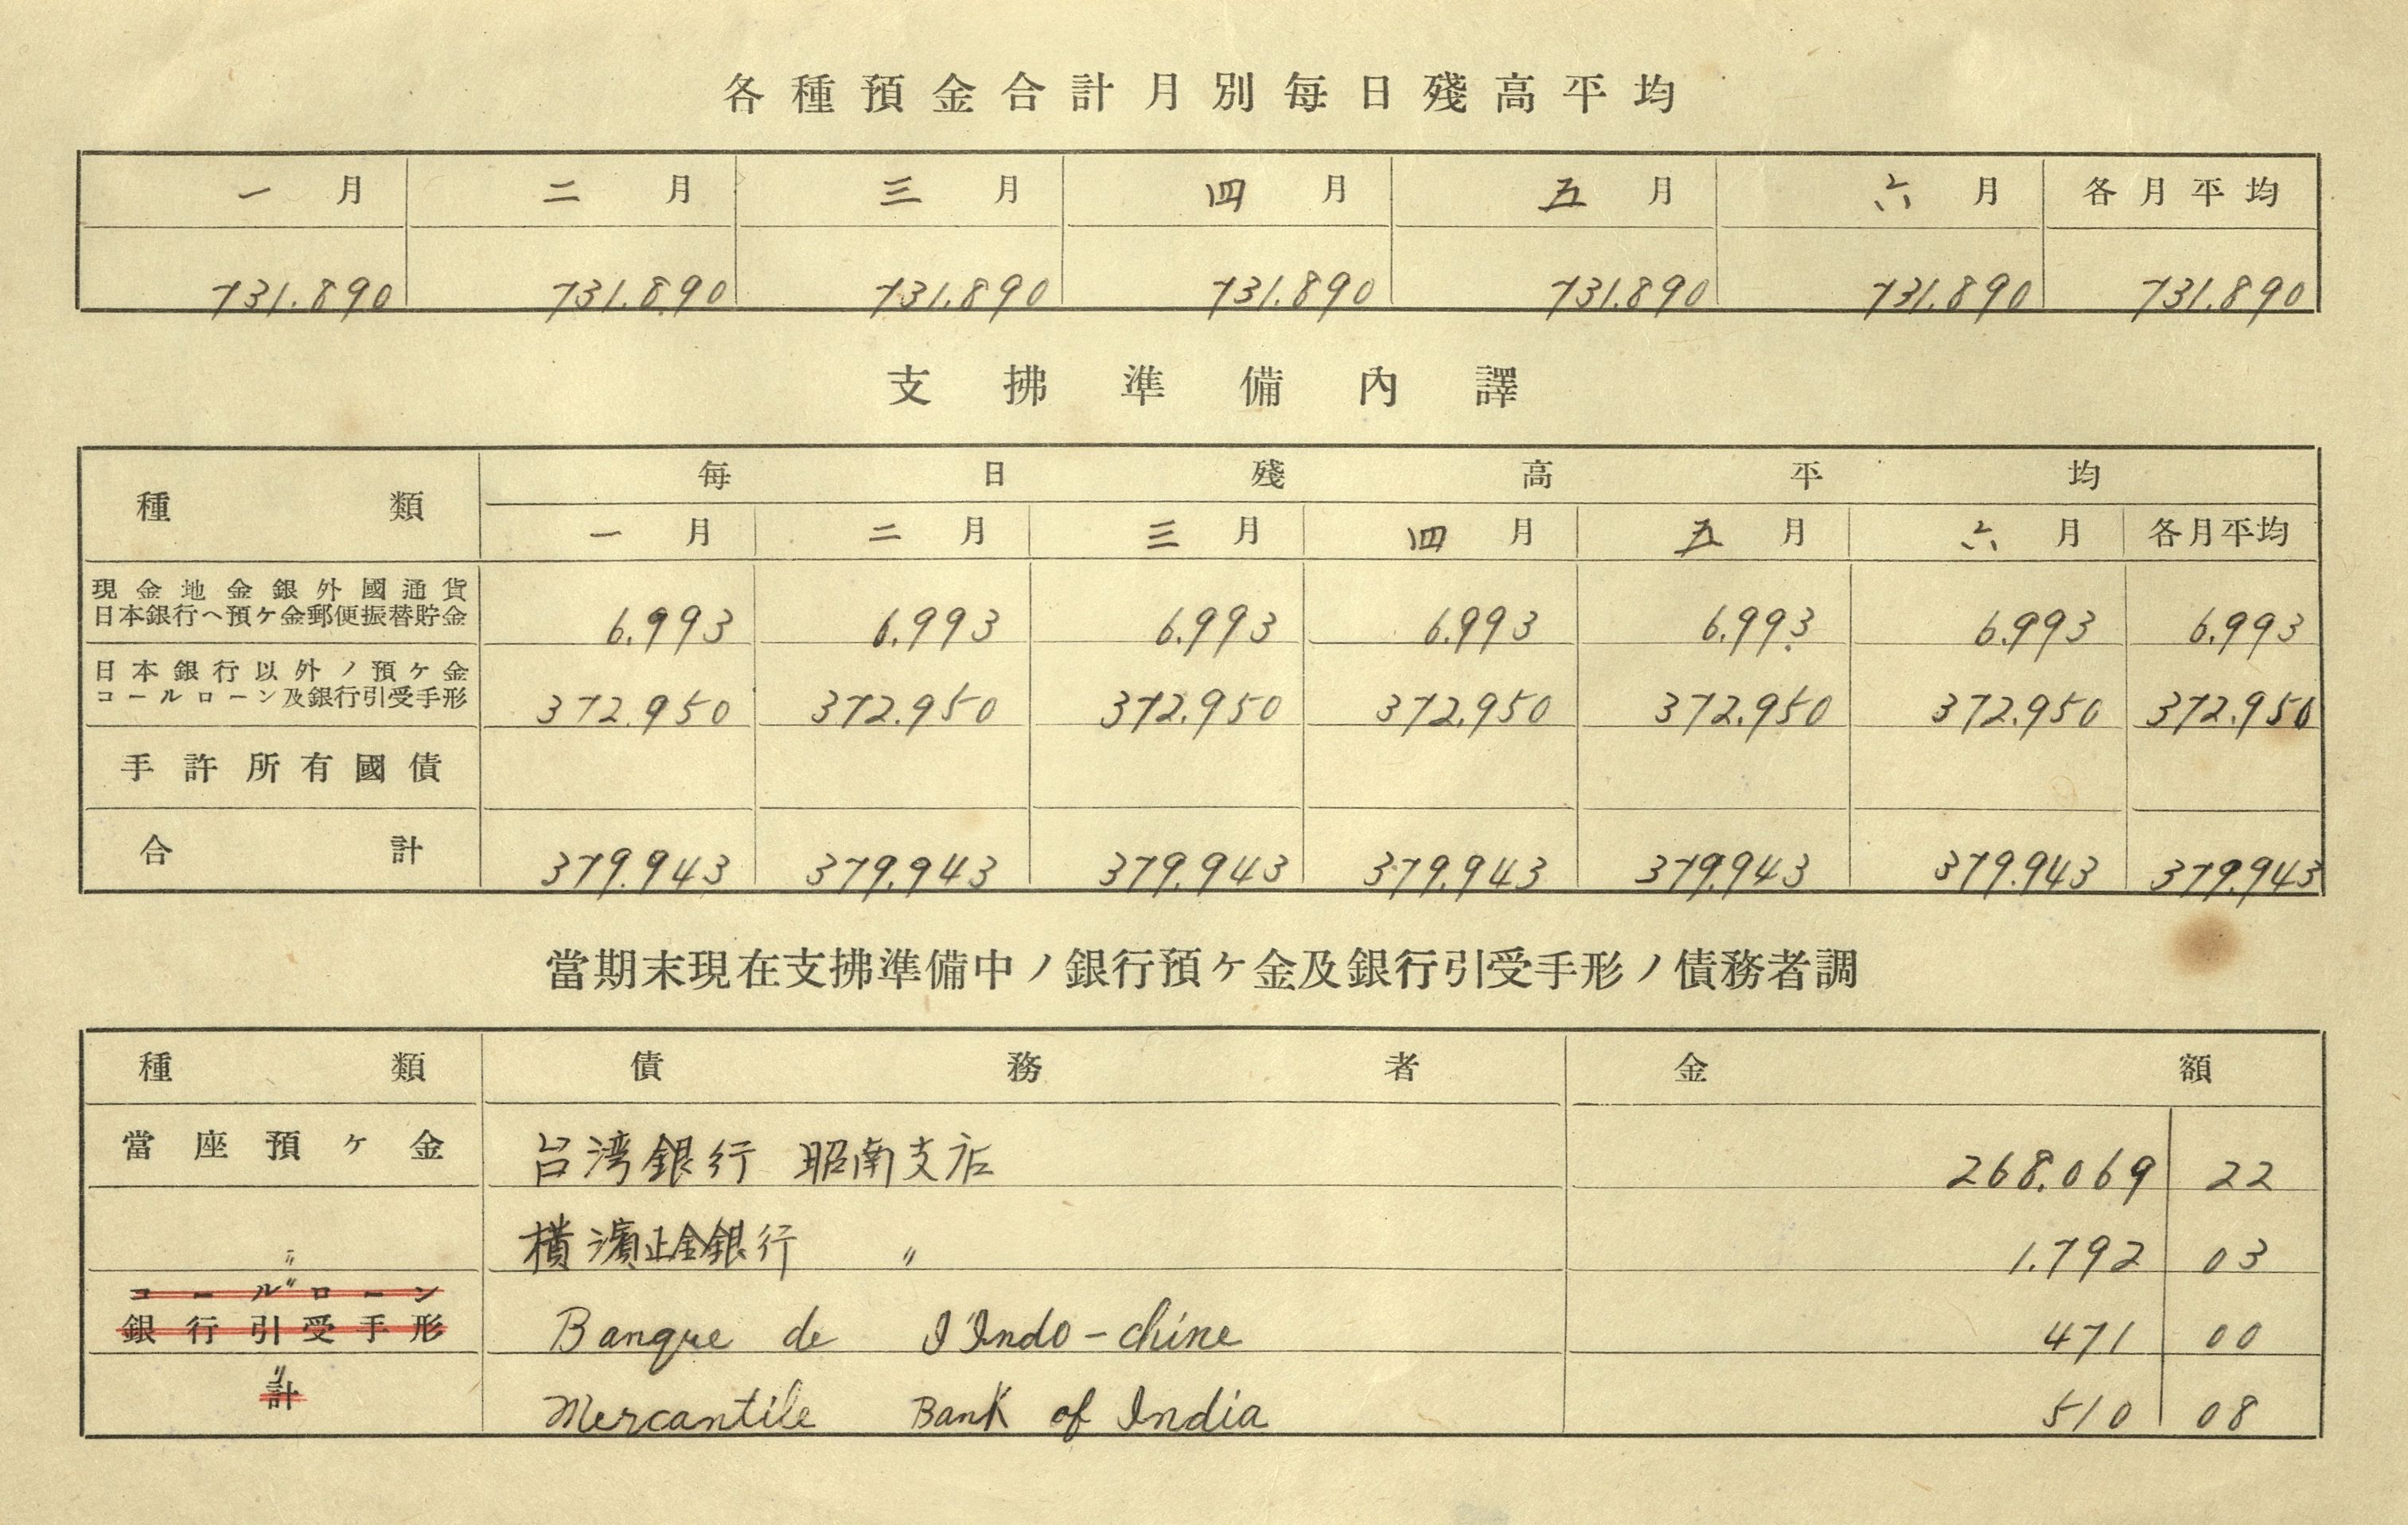 各種預金合計月別每日殘高平均
一月 二月 三月 四月 五月 六月 各月平均
731.890 731.890 731.890 731.890 731.890 731.890 731.890
支拂準備內譯
種類 每日殘高平均
一月 二月 三月 四月 五月 六月 各月平均
現金地金銀外國通貨
日本銀行ヘ預ケ金郵便振替貯金 6.993 6.993 6.993 6.993 6.993 6.993 6.993
日本銀行以外ノ預ケ金
コールローン及銀行引受手形 372.950 372.950 372.950 372.950 372.950 372.950 372.950
手許所有國債
合計 379.943 379.943 379.943 379.943 379.943 379.943 379.943
當期末現在支拂準備中ノ銀行預ケ金及銀行引受手形ノ債務者調
種類 債務者 金額
當座預ケ金 台湾銀行 昭南支店 268.069 22
〃 橫濱正金銀行 〃 1.792 03
コールローン
〃
銀行引受手形 Banque de l'Indo-chine 471 00
〃
計 Mercantile Bank of India 510 08